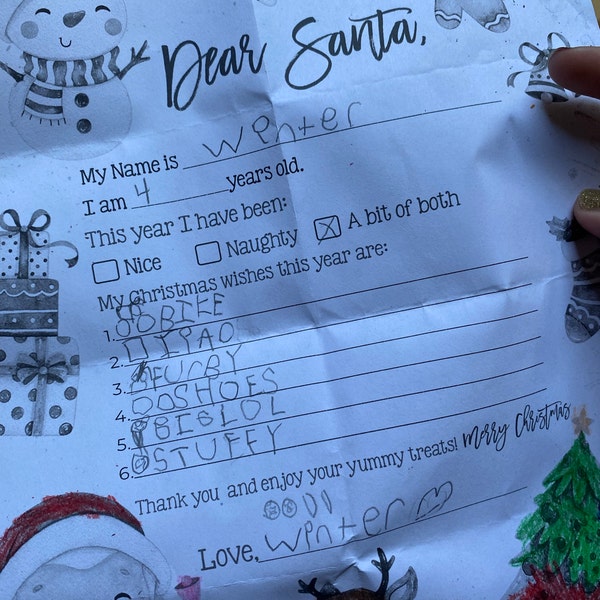 Dear Santa,
My Name is Wenter
I am 4 years old.
This year I have been:
Nice Naughty A bit of both
My Christmas wishes this year are:
1. BIKE
2. IPAD
3. FURBY
4. SHOES
5. BIGLOL
6. STUFFY
Thank you and enjoy your yummy treats! Merry Christmas
Love, winter